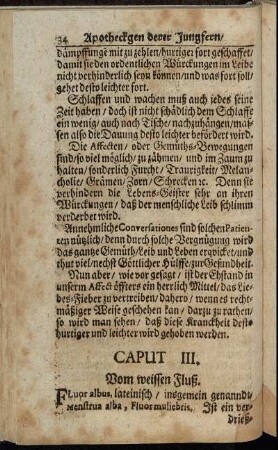 34 Apotheckgen derer Jungfern/
dämpffunge mit zu zehlen/hurtiger fort geschaffet/
damit sie den ordentlichen Würckungen im Leibe
nicht verhinderlich seyn können/und was fort soll/
gehet desto leichter fort.
Schlaffen und wachen muß auch jedes seine
Zeit haben / doch ist nicht schädlich dem Schlaffe
ein wenig/ auch nach Tische/ nachzuhängen/mas-
sen also die Dauung desto leichter befördert wird.
Die Affecten / oder Gemüths-Bewegungen
sind/so viel möglich/ zu zähmen/ und im Zaum zu
halten/sonderlich Furcht/ Traurigkeit/ Melan-
cholie/ Grämen/ Zorn/ Schrecken ꝛc. Denn sie
verhindern die Lebens-Geister sehr an ihren
Würckungen / daß der menschliche Leib schlimm
verderbet wird.
Annehmliche Conversationes sind solchen Patien-
ten nützlich/ denn durch solche Vergnügung wird
das gantze Gemüth/Leib und Leben erqvicket/und
thut viel/nechst Göttlicher Hülffe/zur Gesundheit.
Nun aber/ wie vor gesagt / ist der Ehstand in
unserm Affect öffters ein herrlich Mittel/das Lie-
bes-Fieber zu vertreiben/ dahero/ wenn es recht-
mäßiger Weise geschehen kan/ darzu zu rathen/
so wird man sehen/ daß diese Kranckheit desto
hurtiger und leichter wird gehoben werden.
CAPUT III.
Vom weissen Fluß.
FLuor albus, lateinisch / insgemein genanndt/
Menstrua alba, Fluor muliebris. Ist ein ver-
drieß-